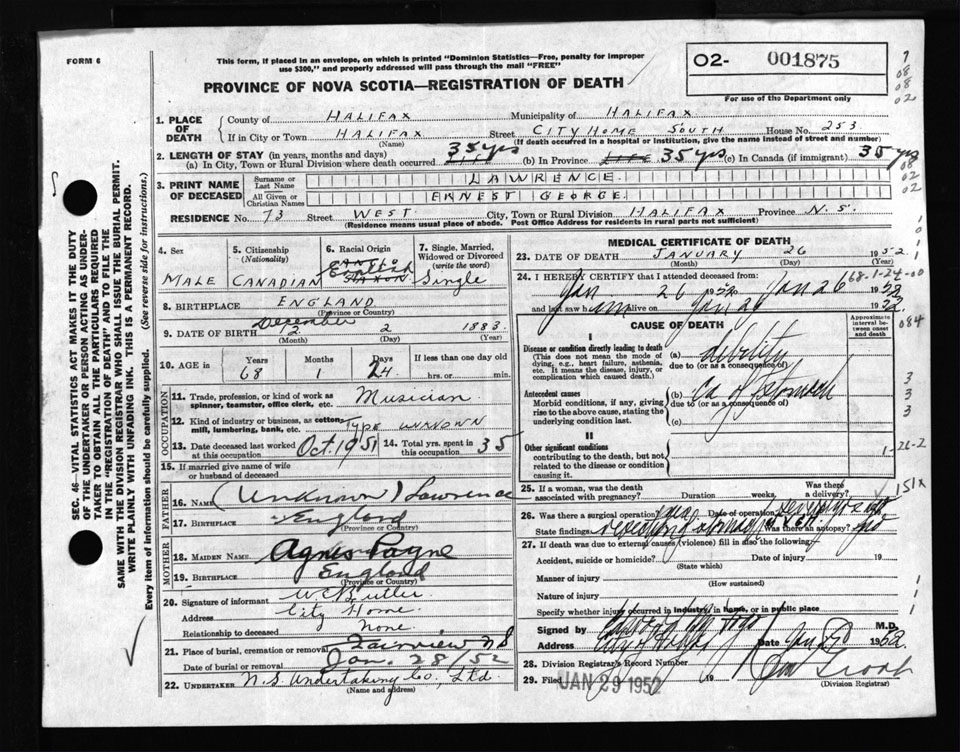 FORM 6
This form, if placed in an envelope, on which is printed "Dominion Statistics—Free, penalty for improper
use $300," and properly addressed will pass through the mail "FREE"
PROVINCE OF NOVA SCOTIA—REGISTRATION OF DEATH
02- 001875
For use of the Department only
7
08
08
02
1. PLACE OF DEATH
County of HALIFAX Municipality of HALIFAX
If in City or Town HALIFAX Street CITY HOME SOUTH House No. 253
(Name) (If death occurred in a hospital or institution, give the name instead of street and number)
2. LENGTH OF STAY (in years, months and days)
(a) In City, Town or Rural Division where death occurred 35 yrs (b) In Province LIFE 35 yrs (c) In Canada (if immigrant) 35 yrs
08
02
02
3. PRINT NAME OF DECEASED
Surname or Last Name LAWRENCE
All Given or Christian Names ERNEST GEORGE
RESIDENCE No. 73 Street WEST City, Town or Rural Division HALIFAX Province N.S.
(Residence means usual place of abode. Post Office Address for residents in rural parts not sufficient)
4. Sex
MALE
5. Citizenship (Nationality)
CANADIAN
6. Racial Origin
ANGLO
SAXON
7. Single, Married, Widowed or Divorced (write the word)
Single
8. BIRTHPLACE ENGLAND
(Province or Country)
9. DATE OF BIRTH December 2 2 1883
(Month) (Day) (Year)
10. AGE in
Years Months Days If less than one day old
68 1 24 hrs. or min.
OCCUPATION
11. Trade, profession, or kind of work as spinner, teamster, office clerk, etc. Musician
12. Kind of industry or business, as cotton mill, lumbering, bank, etc. TYPE UNKNOWN
13. Date deceased last worked at this occupation Oct. 1951
14. Total yrs. spent in this occupation 35
15. If married give name of wife or husband of deceased
FATHER
16. NAME (Unknown) Lawrence
17. BIRTHPLACE England
(Province or Country)
MOTHER
18. MAIDEN NAME Agnes Payne
19. BIRTHPLACE England
(Province or Country)
20. Signature of informant W C Butler
Address City Home.
Relationship to deceased None.
21. Place of burial, cremation or removal Fairview N S
Date of burial or removal Jan. 28/52
22. UNDERTAKER N.S. Undertaking Co., Ltd.
(Name and address)
MEDICAL CERTIFICATE OF DEATH
23. DATE OF DEATH JANUARY 26 1952
(Month) (Day) (Year)
24. I HEREBY CERTIFY that I attended deceased from:
168-1-24-00
Jan 26 1952 Jan 26 1952
and last saw h am alive on Jan 26 1952
084
CAUSE OF DEATH
Approximate interval between onset and death
I
Disease or condition directly leading to death
(This does not mean the mode of dying, e.g., heart failure, asthenia, etc. It means the disease, injury, or complication which caused death.)
(a) debility
due to (or as a consequence of)
Antecedent causes
Morbid conditions, if any, giving rise to the above cause, stating the underlying condition last.
(b) Ca of stomach
due to (or as a consequence of)
(c)
3
3
3
II
Other significant conditions
contributing to the death, but not related to the disease or condition causing it.
1-26-2
25. If a woman, was the death associated with pregnancy? Duration weeks. Was there a delivery?
151x
26. Was there a surgical operation? Date of operation
State findings Was there an autopsy? no
27. If death was due to external causes (violence) fill in also the following:
Accident, suicide or homicide? Date of injury 19
(State which)
Manner of injury
(How sustained)
Nature of injury
Specify whether injury occurred in industry, in home, or in public place
Signed by M.D.
Address City Home Date Jan 1952
28. Division Registrar's Record Number
29. Filed JAN 29 1952 19
(Division Registrar)
SEC. 46—VITAL STATISTICS ACT MAKES IT THE DUTY
OF THE UNDERTAKER OR PERSON ACTING AS UNDER-
TAKER TO OBTAIN ALL THE PARTICULARS REQUIRED
IN THE "REGISTRATION OF DEATH" AND TO FILE THE
SAME WITH THE DIVISION REGISTRAR WHO SHALL ISSUE THE BURIAL PERMIT.
WRITE PLAINLY WITH UNFADING INK. THIS IS A PERMANENT RECORD.
Every item of information should be carefully supplied. (See reverse side for instructions.)